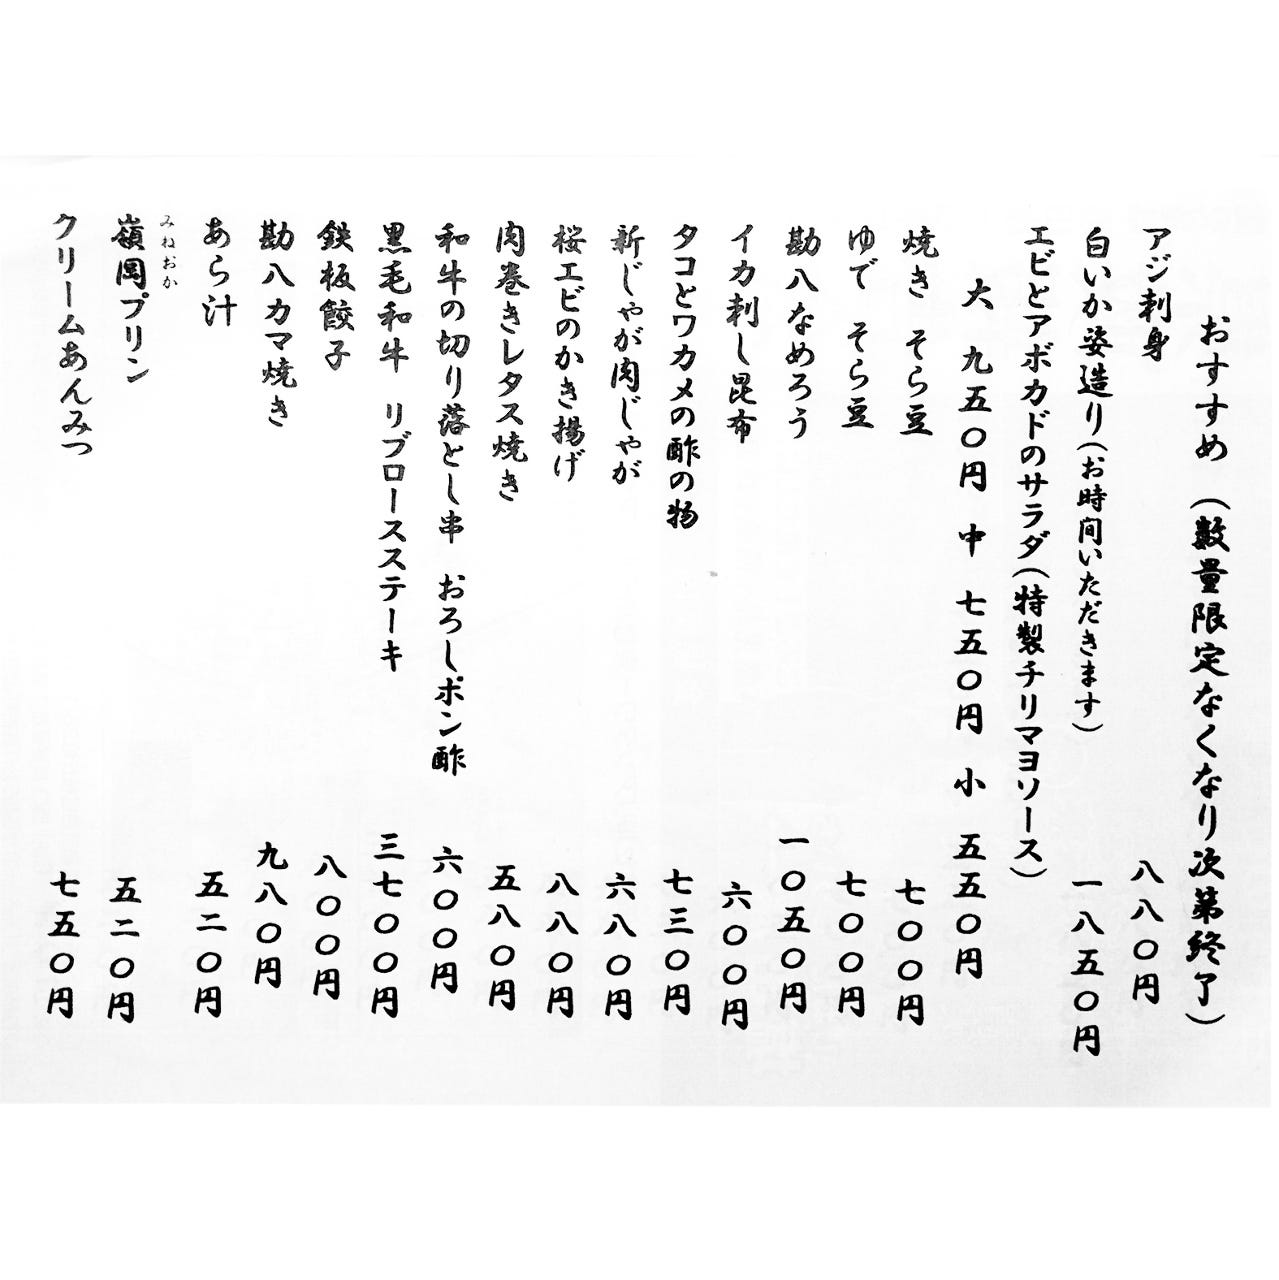 おすすめ（数量限定なくなり次第終了）
アジ刺身 八八〇円
白いか姿造り（お時間いただきます） 一八五〇円
エビとアボカドのサラダ（特製チリマヨソース）
大 九五〇円 中 七五〇円 小 五五〇円
焼き そら豆 七〇〇円
ゆで そら豆 七〇〇円
勘八なめろう 一〇五〇円
イカ刺し昆布 六〇〇円
タコとワカメの酢の物 七三〇円
新じゃが肉じゃが 六八〇円
桜エビのかき揚げ 八八〇円
肉巻きレタス焼き 五八〇円
和牛の切り落とし串 おろしポン酢 六〇〇円
黒毛和牛 リブロースステーキ 三七〇〇円
鉄板餃子 八〇〇円
勘八カマ焼き 九八〇円
あら汁 五二〇円
みねおか
嶺岡プリン 五二〇円
クリームあんみつ 七五〇円